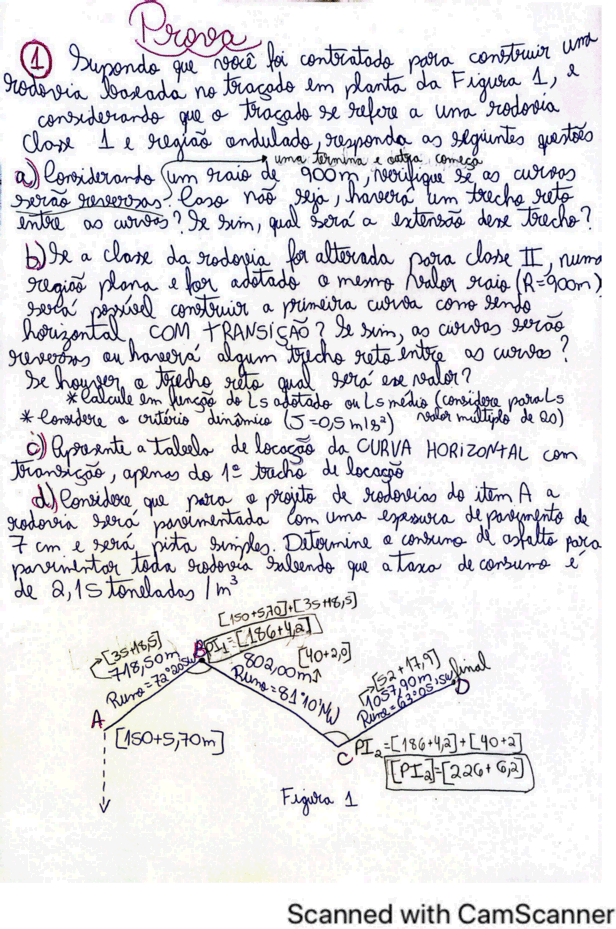 Prova
① Supondo que você foi contratado para construir uma
rodovia baseada no traçado em planta da Figura 1, e
considerando que o traçado se refere a uma rodovia
Classe 1 e região ondulado, responda as seguintes questões
uma termina e outra começa
a) Considerando um raio de 900m, verifique se as curvas
serão reversas. Caso não seja, haverá um trecho reto
entre as curvas? Se sim, qual será a extensão desse trecho?
b) Se a classe da rodovia for alterada para classe II, numa
região plana e for adotado o mesmo valor raio (R=900m)
será possível construir a primeira curva como sendo
horizontal COM TRANSIÇÃO? Se sim, as curvas serão
reversas ou haverá algum trecho reto entre as curvas?
Se houver o trecho reto qual será esse valor?
* Calcule em função do Ls adotado ou Ls médio (considere para Ls
valor multiplo de 20)
* Considere o critério dinâmico (J=0,5 m/s²)
c) Apresente a tabela de locação da CURVA HORIZONTAL com
transição, apenas do 1º trecho de locação
d) Considere que para o projeto de rodovias do item A a
rodovia será pavimentada com uma espessura de pavimento de
7 cm e será pista simples. Determine o consumo de asfalto para
pavimentar toda rodovia sabendo que a taxa de consumo é
de 2,15 toneladas /m³
[150+5,70]+[35+18,5]
[35+18,5]
B PI₁=[186+4,2]
718,50m
Rumo=72°20'SW
[40+2,0]
802,00m
Rumo=81°10'NW
[52+17,9]
1057,90m
Rumo=63°05'SW
final
D
A
[150+5,70m]
C
PI₂=[186+4,2]+[40+2]
[PI₂]=[226+6,2]
Figura 1
Scanned with CamScanner